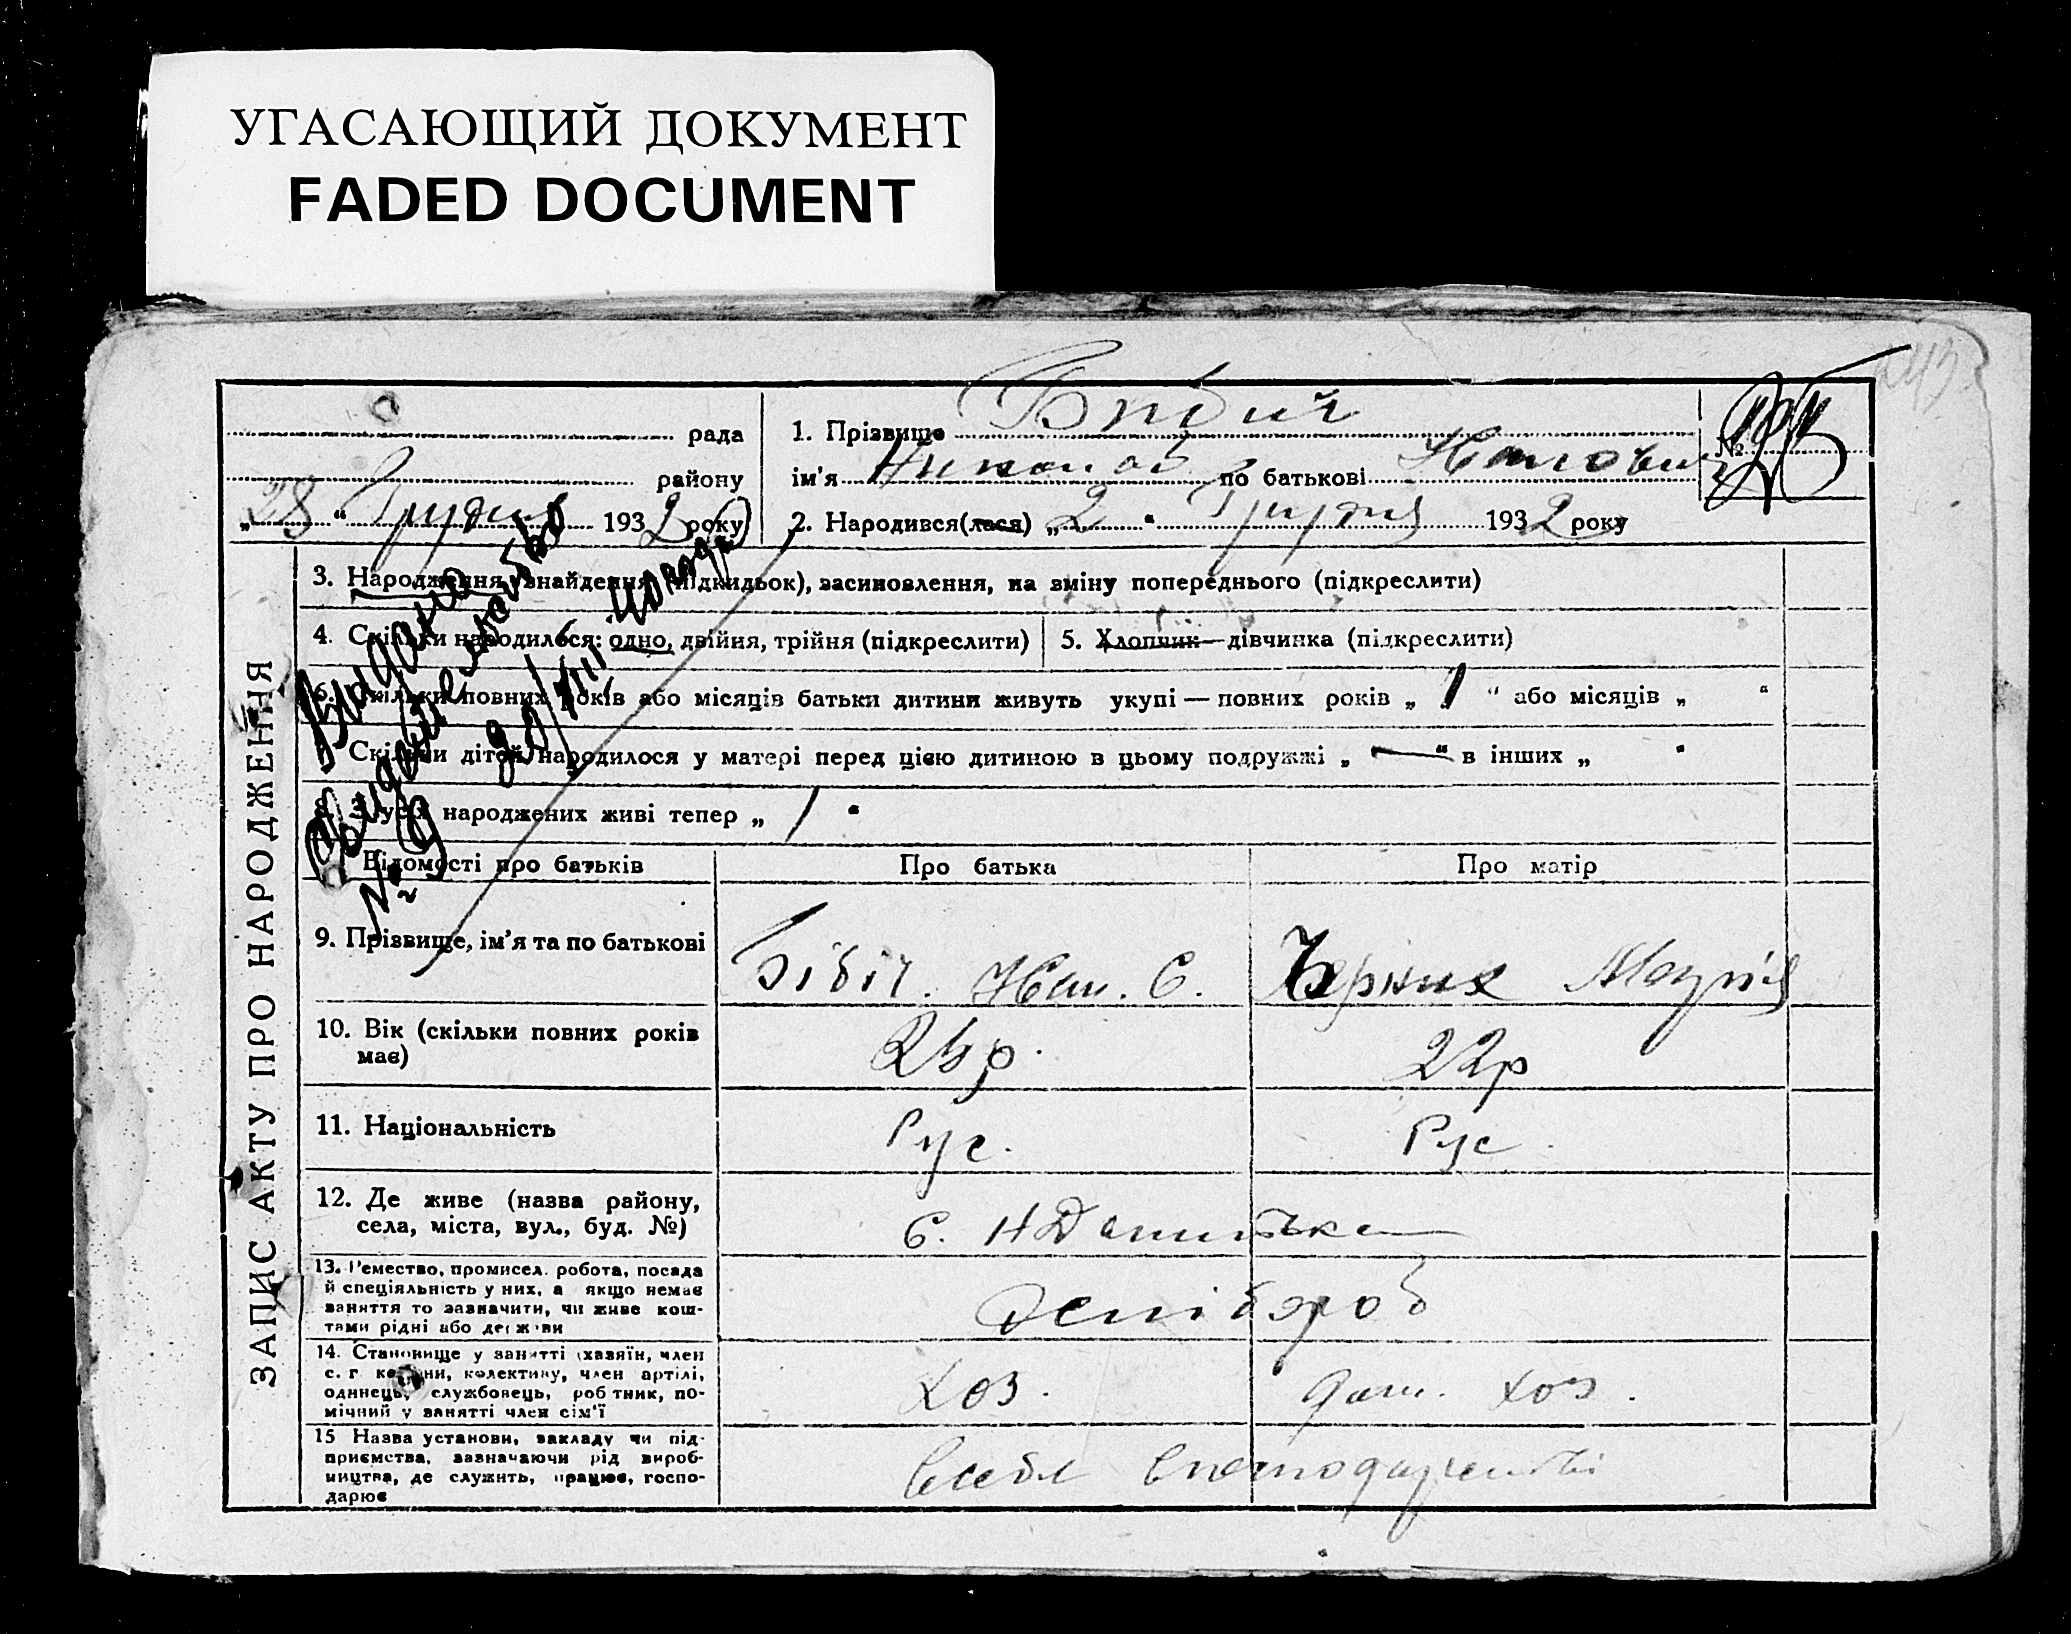 УГАСАЮЩИЙ ДОКУМЕНТ
FADED DOCUMENT
ЗАПИС АКТУ ПРО НАРОДЖЕННЯ
рада
району
„28“ Грудня 1932 року
1. Прізвище Бибич
ім'я Николай по батькові
2. Народився(лася) „2“ Грудня 1932 року
№
3. Народження, знайдення (підкидьок), засиновлення, на зміну попереднього (підкреслити)
4. Скільки народилося: одно, двійня, трійня (підкреслити)
5. Хлопчик—дівчинка (підкреслити)
6. Скільки повних років або місяців батьки дитини живуть укупі — повних років „1“ або місяців „ “
Скільки дітей народилося у матері перед цією дитиною в цьому подружжі „—“ в інших „ “
8. З усіх народжених живі тепер „1“
Видано
№
Відомості про батьків
Про батька
Про матір
9. Прізвище, ім'я та по батькові
Бібіч. С.
Черник Марія
10. Вік (скільки повних років має)
22р
11. Національність
Рус.
Рус.
12. Де живе (назва району,
села, міста, вул., буд. №)
с. Н
13. Ремество, промисел. робота, посада
й спеціяльність у них, а якщо немає
заняття то зазначити, чи живе кош-
тами рідні або держави
хлібороб
14. Становище у занятті (хазяїн, член
с. г. комуни, колективу, член артілі,
одинець, службовець, робітник, по-
мічний у занятті член сім'ї
хоз.
дом. хоз.
15 Назва установи, закладу чи під-
приємства, зазначаючи рід вироб-
ництва, де служить, працює, госпо-
дарює